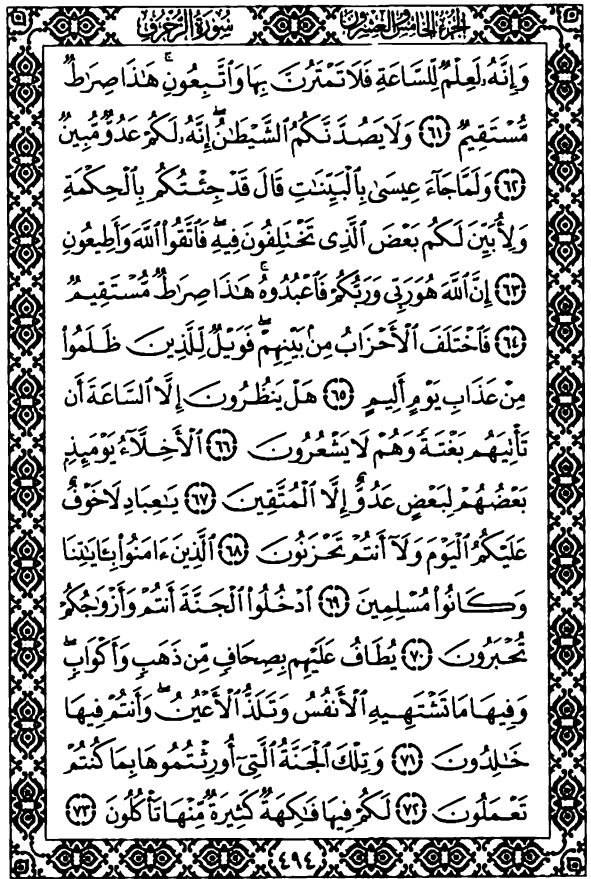 سورة الزخرف الجزء الخامس والعشرون
وَإِنَّهُۥ لَعِلْمٌ لِّلسَّاعَةِ فَلَا تَمْتَرُنَّ بِهَا وَٱتَّبِعُونِ ۚ هَٰذَا صِرَٰطٌ
مُّسْتَقِيمٌ ٦١ وَلَا يَصُدَّنَّكُمُ ٱلشَّيْطَٰنُ ۖ إِنَّهُۥ لَكُمْ عَدُوٌّ مُّبِينٌ
٦٢ وَلَمَّا جَآءَ عِيسَىٰ بِٱلْبَيِّنَٰتِ قَالَ قَدْ جِئْتُكُم بِٱلْحِكْمَةِ
وَلِأُبَيِّنَ لَكُم بَعْضَ ٱلَّذِى تَخْتَلِفُونَ فِيهِ ۖ فَٱتَّقُوا۟ ٱللَّهَ وَأَطِيعُونِ
٦٣ إِنَّ ٱللَّهَ هُوَ رَبِّى وَرَبُّكُمْ فَٱعْبُدُوهُ ۚ هَٰذَا صِرَٰطٌ مُّسْتَقِيمٌ
٦٤ فَٱخْتَلَفَ ٱلْأَحْزَابُ مِنۢ بَيْنِهِمْ ۖ فَوَيْلٌ لِّلَّذِينَ ظَلَمُوا۟
مِنْ عَذَابِ يَوْمٍ أَلِيمٍ ٦٥ هَلْ يَنظُرُونَ إِلَّا ٱلسَّاعَةَ أَن
تَأْتِيَهُم بَغْتَةً وَهُمْ لَا يَشْعُرُونَ ٦٦ ٱلْأَخِلَّآءُ يَوْمَئِذٍۭ
بَعْضُهُمْ لِبَعْضٍ عَدُوٌّ إِلَّا ٱلْمُتَّقِينَ ٦٧ يَٰعِبَادِ لَا خَوْفٌ
عَلَيْكُمُ ٱلْيَوْمَ وَلَآ أَنتُمْ تَحْزَنُونَ ٦٨ ٱلَّذِينَ ءَامَنُوا۟ بِـَٔايَٰتِنَا
وَكَانُوا۟ مُسْلِمِينَ ٦٩ ٱدْخُلُوا۟ ٱلْجَنَّةَ أَنتُمْ وَأَزْوَٰجُكُمْ
تُحْبَرُونَ ٧٠ يُطَافُ عَلَيْهِم بِصِحَافٍ مِّن ذَهَبٍ وَأَكْوَابٍ ۖ
وَفِيهَا مَا تَشْتَهِيهِ ٱلْأَنفُسُ وَتَلَذُّ ٱلْأَعْيُنُ ۖ وَأَنتُمْ فِيهَا
خَٰلِدُونَ ٧١ وَتِلْكَ ٱلْجَنَّةُ ٱلَّتِىٓ أُورِثْتُمُوهَا بِمَا كُنتُمْ
تَعْمَلُونَ ٧٢ لَكُمْ فِيهَا فَٰكِهَةٌ كَثِيرَةٌ مِّنْهَا تَأْكُلُونَ ٧٣
٤٩٤